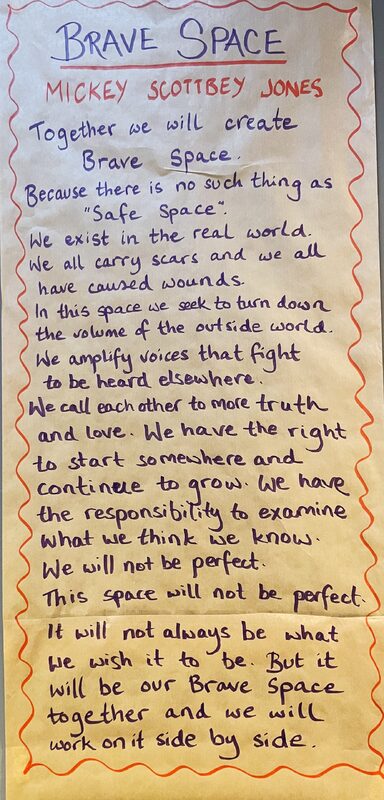 BRAVE SPACE
MICKEY SCOTTBEY JONES
Together we will create
Brave Space.
Because there is no such thing as
"Safe Space".
We exist in the real world.
We all carry scars and we all
have caused wounds.
In this space we seek to turn down
the volume of the outside world.
We amplify voices that fight
to be heard elsewhere.
We call each other to more truth
and love. We have the right
to start somewhere and
continue to grow. We have
the responsibility to examine
what we think we know.
We will not be perfect.
This space will not be perfect.
It will not always be what
we wish it to be. But it
will be our Brave Space
together and we will
work on it side by side.